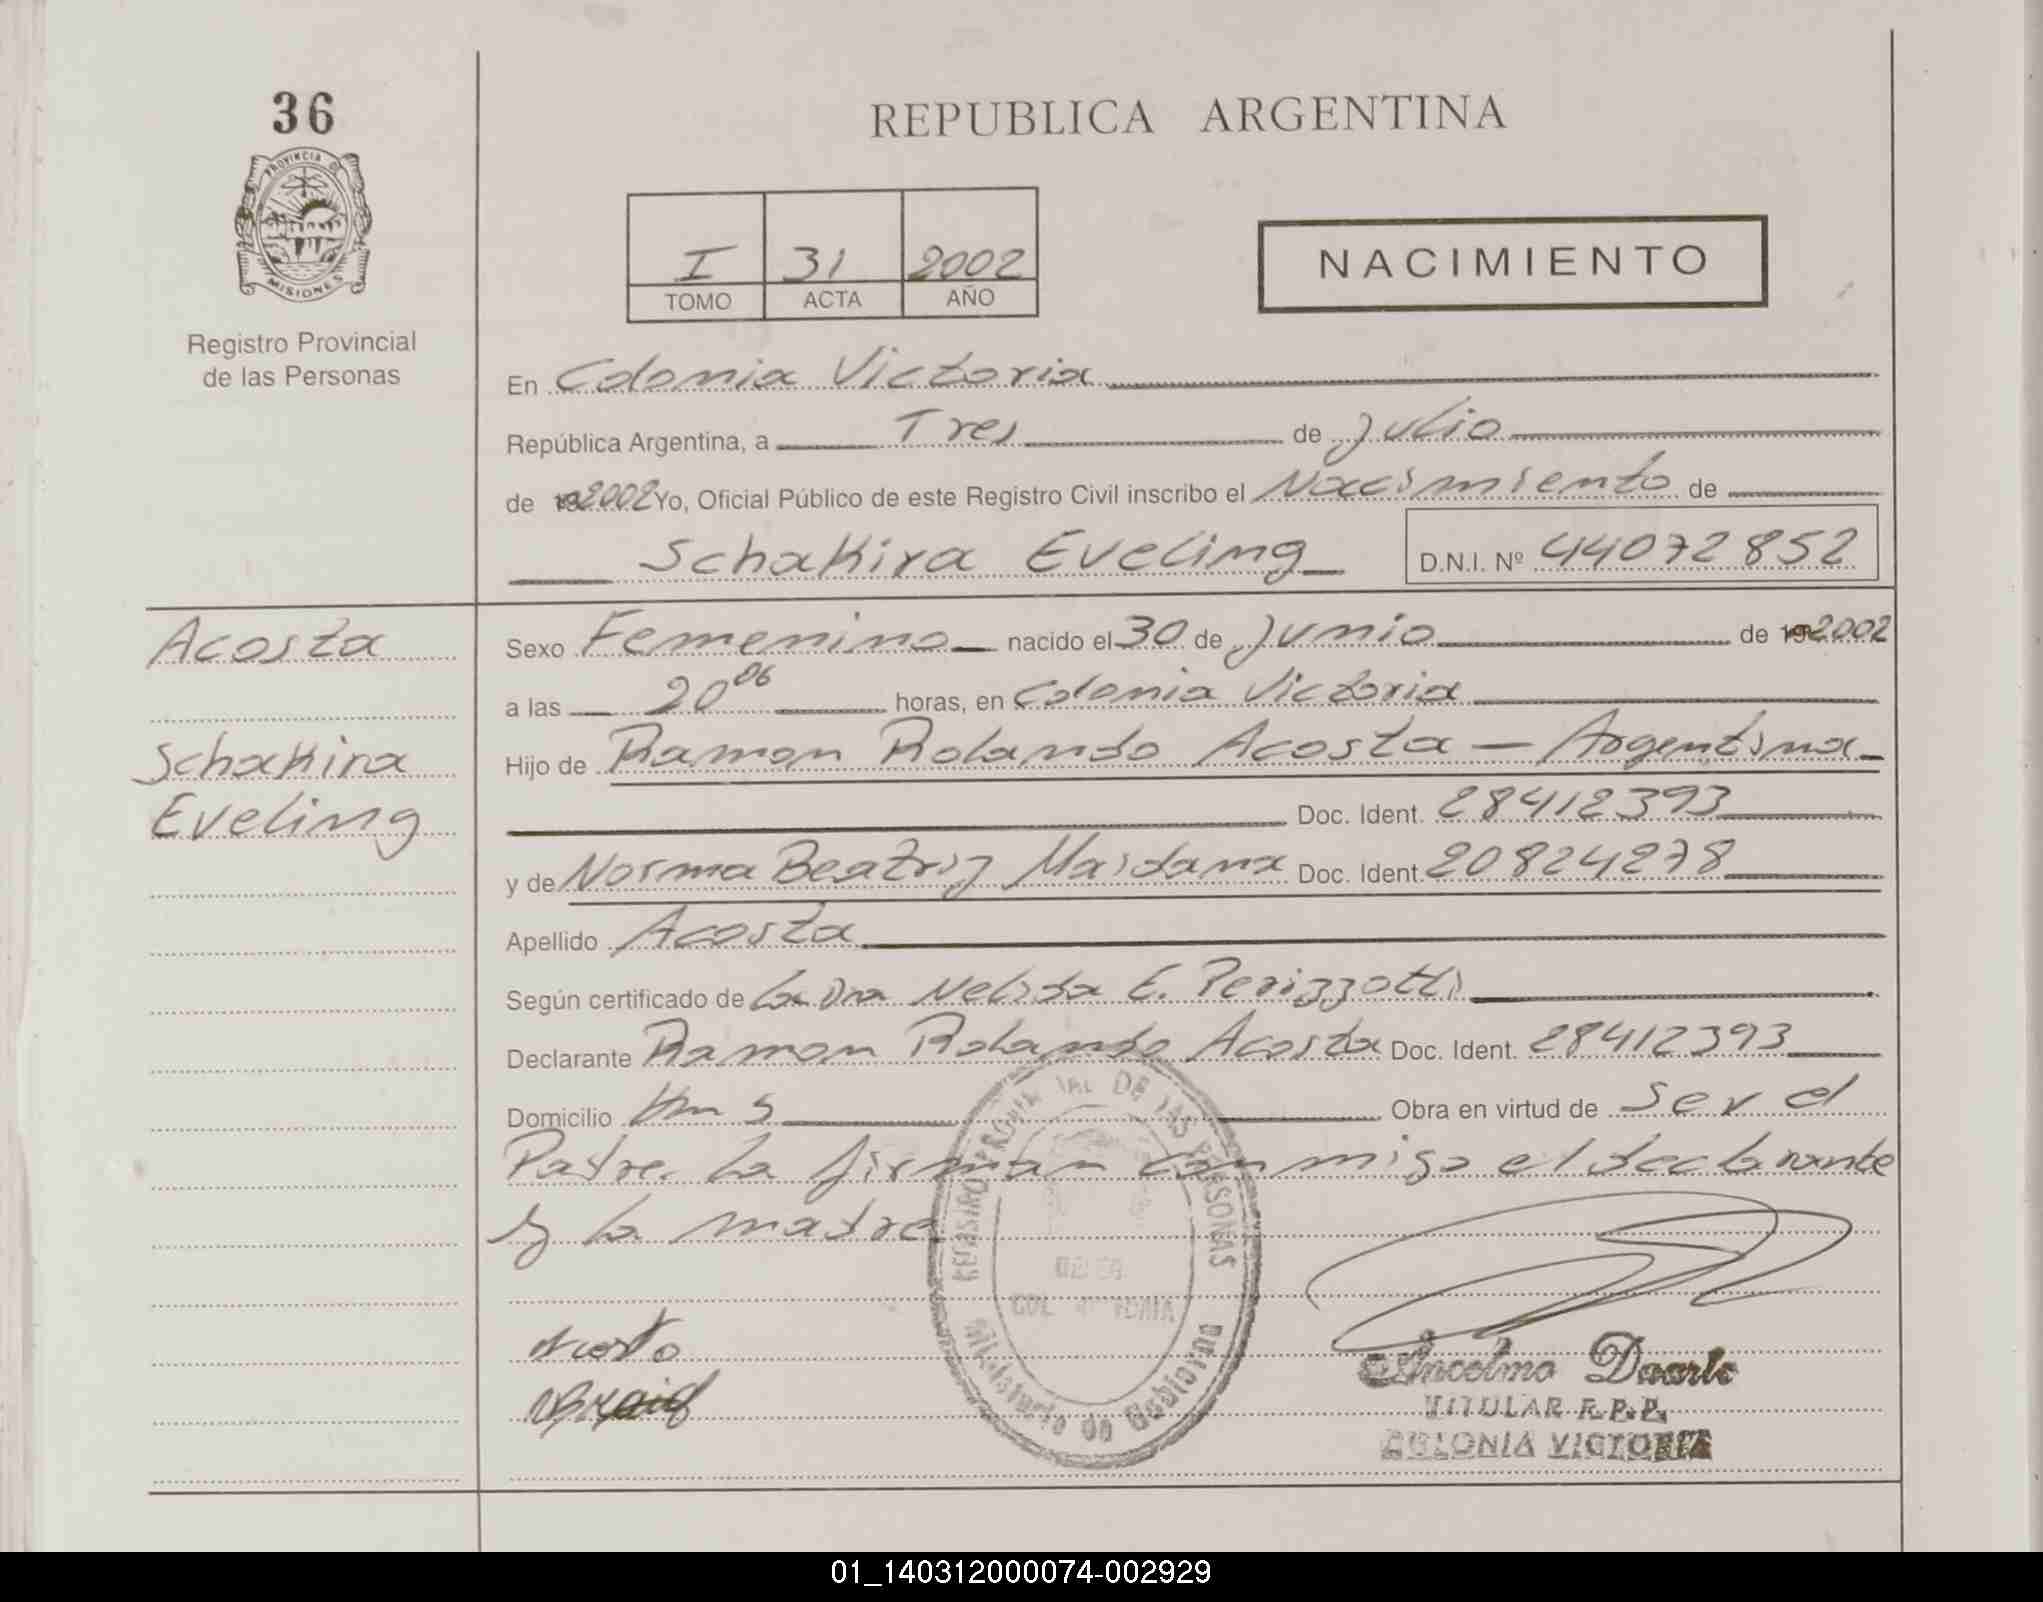 36
PROVINCIA DE
MISIONES
Registro Provincial
de las Personas
REPUBLICA ARGENTINA
I 31 2002
TOMO ACTA AÑO
NACIMIENTO
En Colonia Victoria
República Argentina, a Tres de Julio
de 192002 Yo, Oficial Público de este Registro Civil inscribo el Nacimiento de
Schakira Eveling D.N.I. Nº 44072852
Acosta
Schakira
Eveling
Sexo Femenino nacido el 30 de Junio de 192002
a las 20 06 horas, en Colonia Victoria
Hijo de Ramon Rolando Acosta — Argentina
Doc. Ident. 28412393
y de Norma Beatriz Maidana Doc. Ident. 20824278
Apellido Acosta
Según certificado de La Dra Nelida E. Perizzotti
Declarante Ramon Rolando Acosta Doc. Ident. 28412393
Domicilio Km 5 Obra en virtud de Ser el
Padre. La firman conmigo el declarante
y la madre
REGISTRO PROVINCIAL DE LAS PERSONAS
Ministerio de Gobierno
Acosta
Ancelmo Duarte
TITULAR R.P.P.
COLONIA VICTORIA
01_140312000074-002929